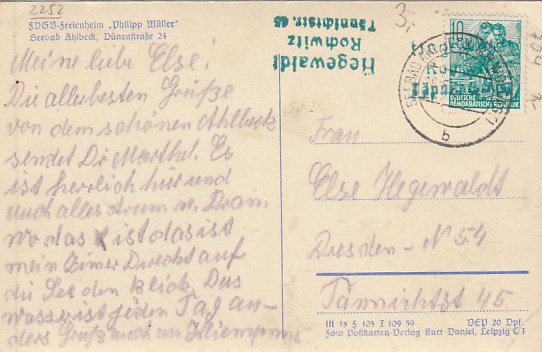 2252
FDGB-Ferienheim „Philipp Müller"
Seebad Ahlbeck, Dünenstraße 24
Meine liebe Else.
Die allerbesten Grüße
von dem schönen Ahlbeck
sendet Dir Marthel. Es
ist herrlich hier und
auch alles drum u. Dran.
wo das x ist das ist
mein Zimer Direckt auf
die See den blick. Das
wasser ist jeden Tag an-
ders Gruß auch an
Hegewaldt
Rochwitz
Tännichtstr. 45
3,-
10
DEUTSCHE
DEMOKRATISCHE REPUBLIK
SEEBAD
b
Frau
Else Hegewaldt
Dresden - N 54
Tännichtst 45
III 18 F 105 I 109 59
VEB 20 Dpf
Foto Postkarten-Verlag Kurt Daniel, Leipzig C 1